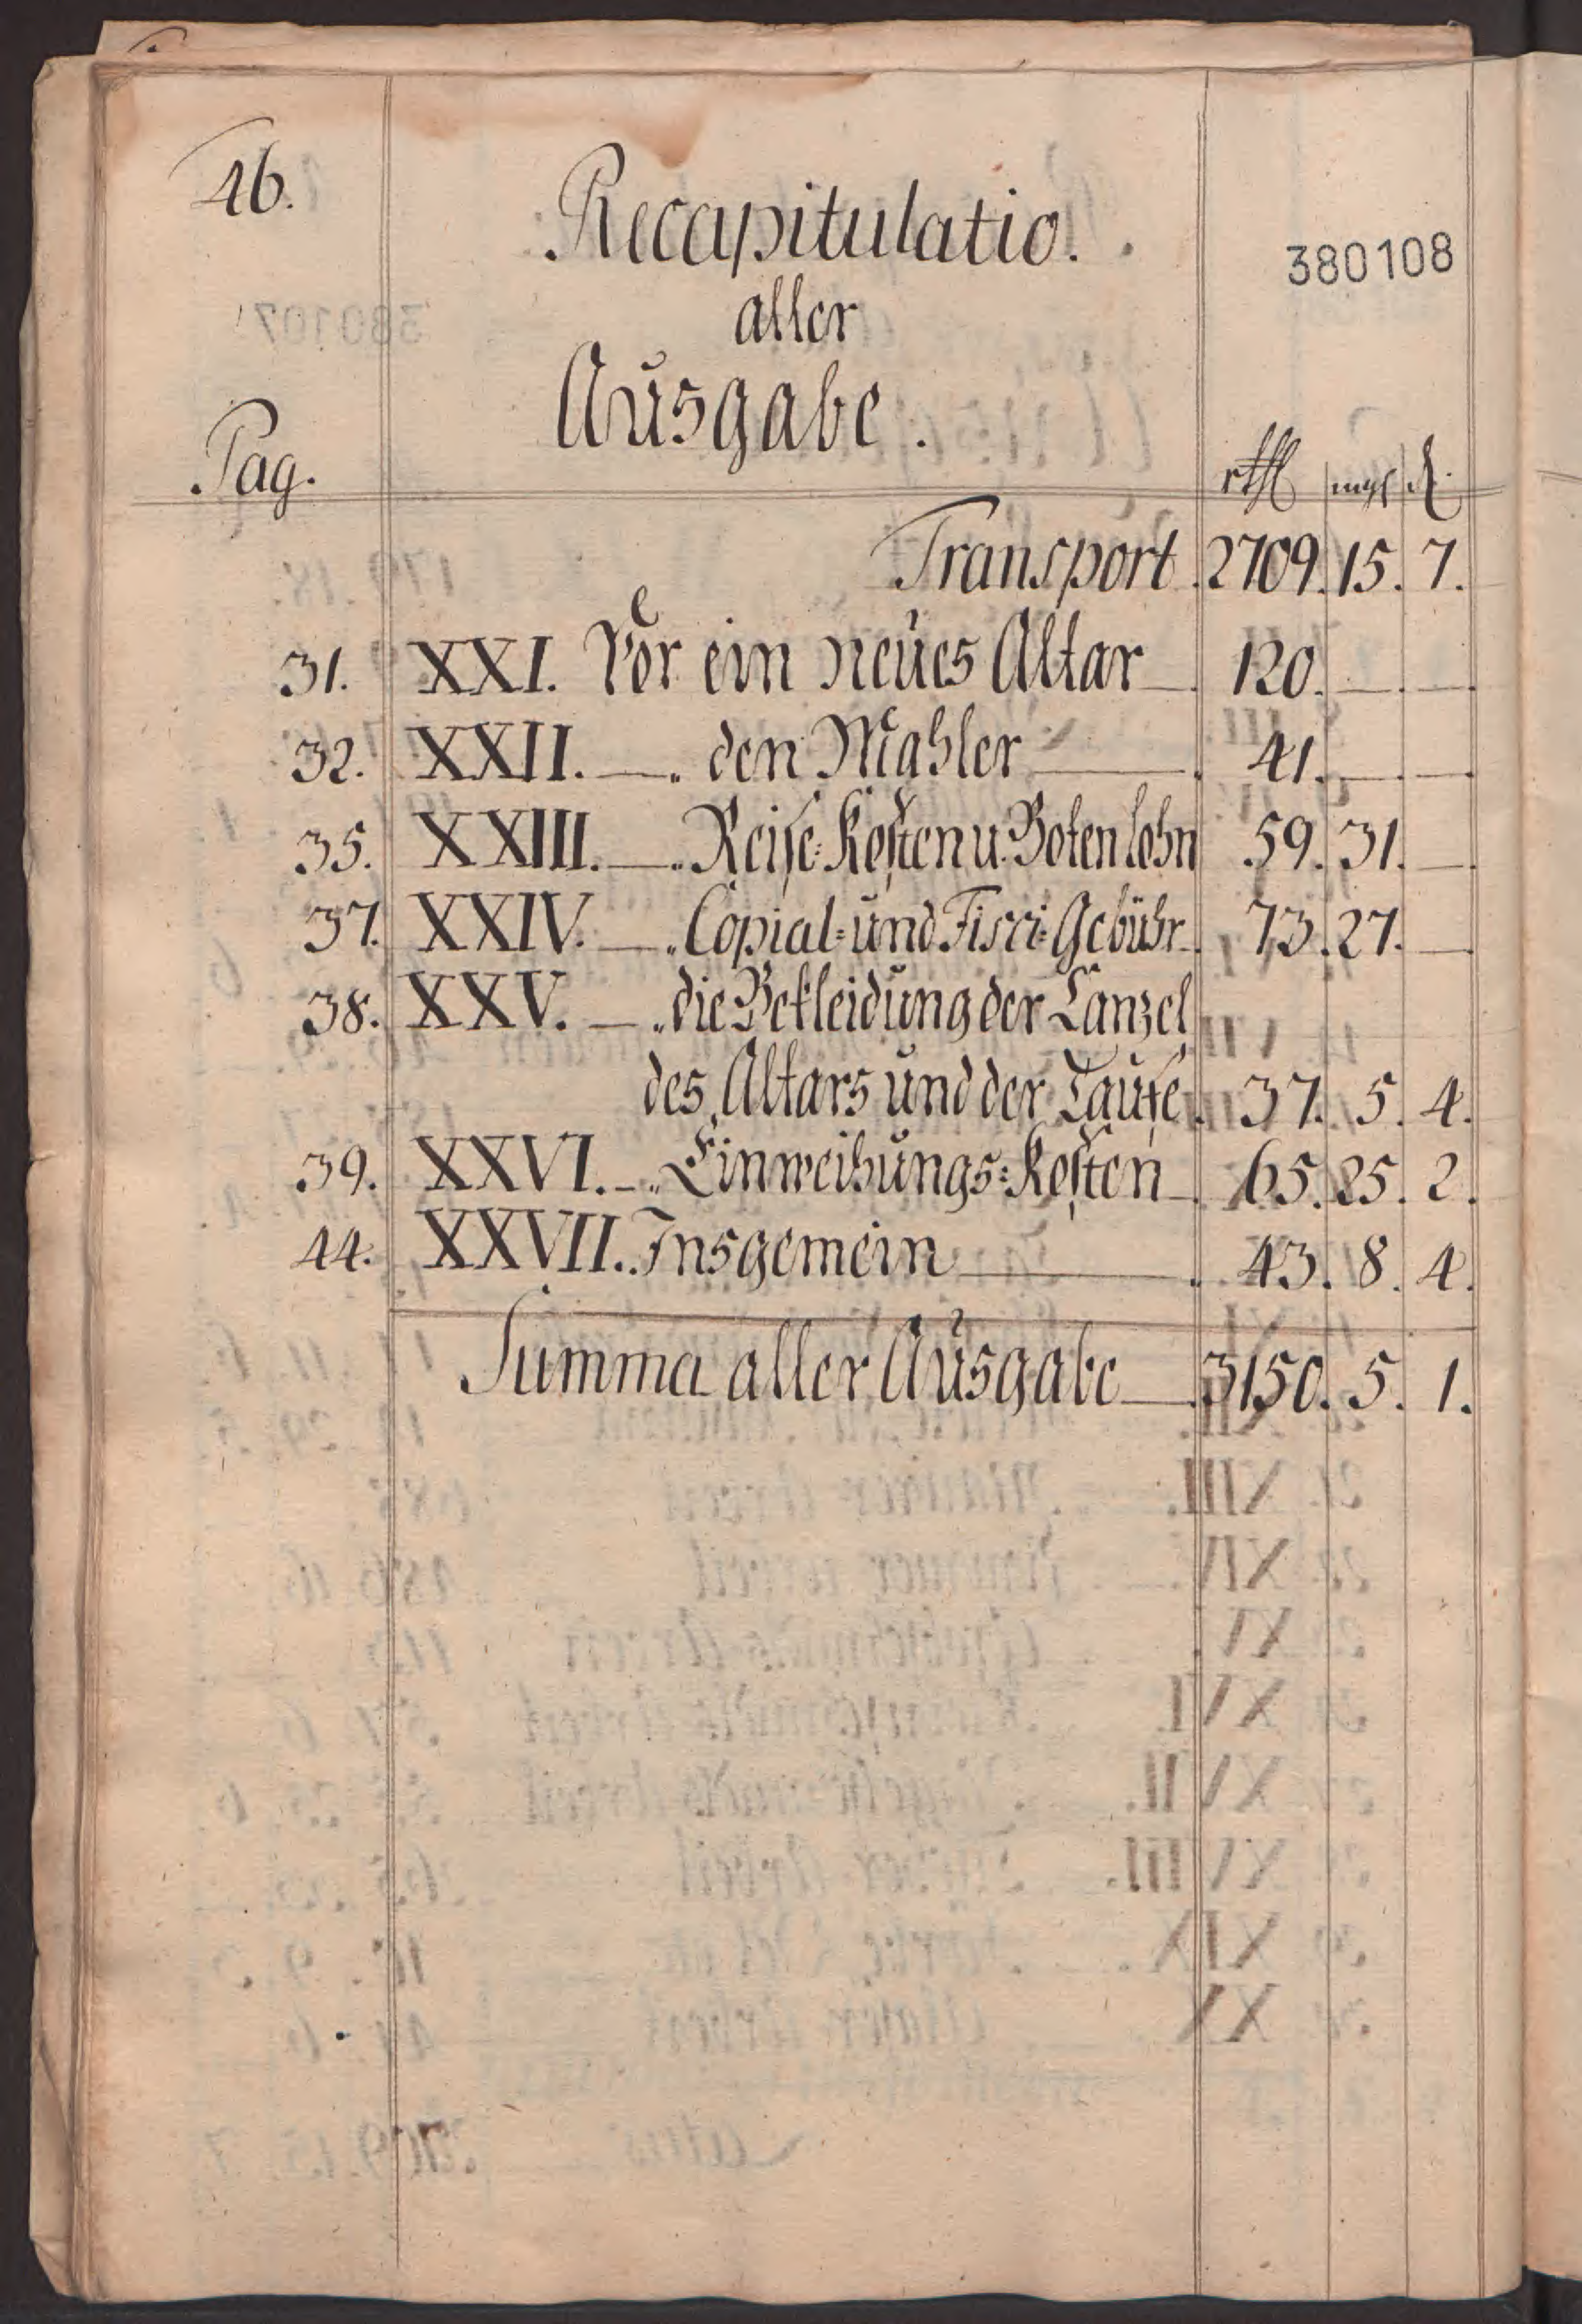 46.
Recapitulatio.
380108
aller
Ausgabe.
Pag.
rthl mgl d.
Transport 2709. 15. 7.
31. XXI. Vor ein neües Altar — 120. — —
32. XXII. — " den Mahler — 41. — —
35. XXIII. — " Reise-Kosten u. Botenlohn 59. 31. —
37. XXIV. — " Copial- und Fisci-Gebühr 73. 27. —
38. XXV. — " die Bekleidung der Canzel
des Altars und der Taufe 37. 5. 4.
39. XXVI. — " Einweihungs-Kosten — 65. 25. 2.
44. XXVII. Insgemein — 43. 8. 4.
Summa aller Ausgabe — 3150. 5. 1.